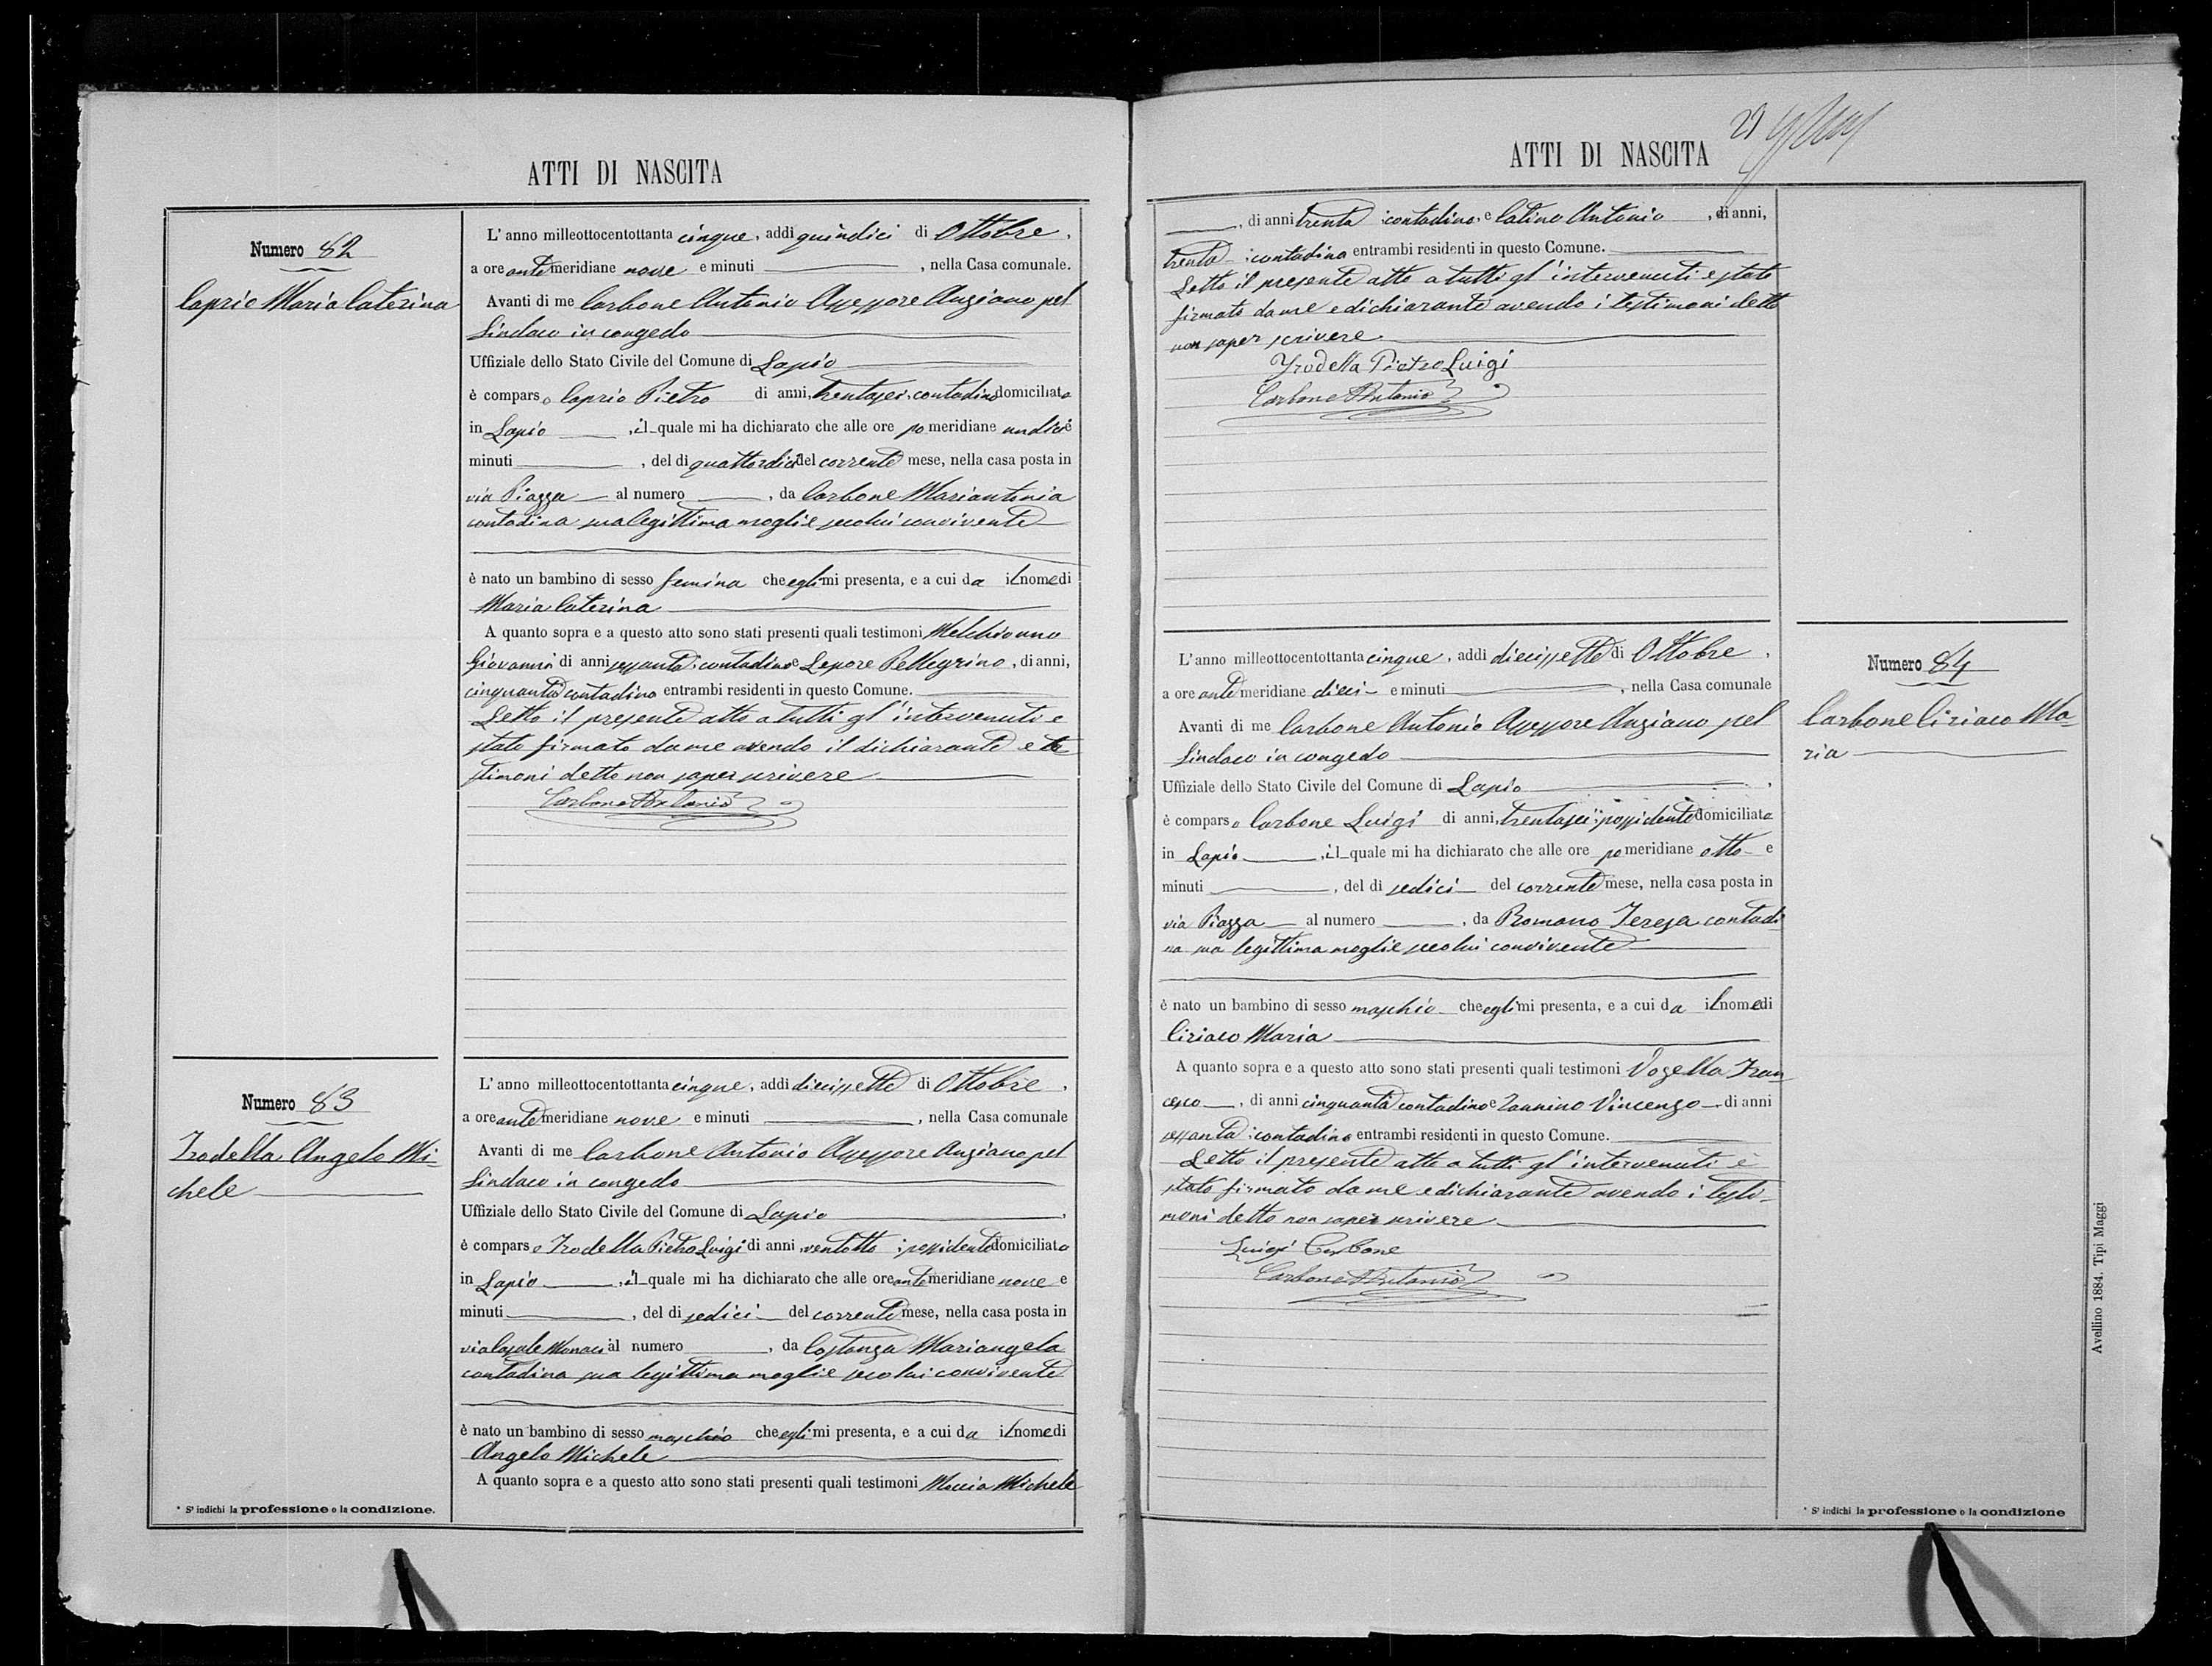 ATTI DI NASCITA
Numero 82
Caprio Maria Caterina
L'anno milleottocentottanta cinque, addi quindici di Ottobre,
a ore antemeridiane nove e minuti, nella Casa comunale.
Avanti di me Carbone Antonio Assessore Anziano pel
Sindaco in congedo
Uffiziale dello Stato Civile del Comune di Lapio
è comparso Caprio Pietro di anni, trentasei, contadino domiciliato
in Lapio, il quale mi ha dichiarato che alle ore pomeridiane undici e
minuti, del di quattordici del corrente mese, nella casa posta in
via Piazza al numero, da Carbone Mariantonia
contadina sua legittima moglie secolui convivente
è nato un bambino di sesso femina che egli mi presenta, e a cui da il nome di
Maria Caterina
A quanto sopra e a questo atto sono stati presenti quali testimoni Melchionno
Giovanni di anni sessanta contadino e Lepore Pellegrino, di anni,
cinquanta contadino entrambi residenti in questo Comune.
Letto il presente atto a tutti gl'intervenuti e
stato firmato da me avendo il dichiarante e te
stimoni detto non saper scrivere
Carbone Antonio
Numero 83
Trodella Angelo Mi-
chele
L'anno milleottocentottanta cinque, addi diecissette di Ottobre,
a ore antemeridiane nove e minuti, nella Casa comunale
Avanti di me Carbone Antonio Assessore Anziano pel
Sindaco in congedo
Uffiziale dello Stato Civile del Comune di Lapio,
è comparso Trodella Pietro Luigi di anni, ventotto, possidente domiciliato
in Lapio, il quale mi ha dichiarato che alle ore antemeridiane nove e
minuti, del di sedici del corrente mese, nella casa posta in
via Casale Monaci al numero, da Costanza Mariangela
contadina sua legittima moglie secolui convivente
è nato un bambino di sesso maschio che egli mi presenta, e a cui da il nome di
Angelo Michele
A quanto sopra e a questo atto sono stati presenti quali testimoni Moccia Michele
* S' indichi la professione o la condizione.
ATTI DI NASCITA
, di anni trenta contadino, e Catino Antonio, di anni,
trenta contadino entrambi residenti in questo Comune.
Letto il presente atto a tutti gl'intervenuti e stato
firmato da me e dichiarante avendo i testimoni detto
non saper scrivere
Trodella Pietro Luigi
Carbone Antonio
Numero 84
Carbone Ciriaco Ma-
ria
L'anno milleottocentottanta cinque, addi diecissette di Ottobre,
a ore antemeridiane dieci e minuti, nella Casa comunale
Avanti di me Carbone Antonio Assessore Anziano pel
Sindaco in congedo
Uffiziale dello Stato Civile del Comune di Lapio,
è comparso Carbone Luigi di anni, trentasei, possidente domiciliato
in Lapio, il quale mi ha dichiarato che alle ore pomeridiane otto e
minuti, del di sedici del corrente mese, nella casa posta in
via Piazza al numero, da Romano Teresa contadi
na sua legittima moglie secolui convivente
è nato un bambino di sesso maschio che egli mi presenta, e a cui da il nome di
Ciriaco Maria
A quanto sopra e a questo atto sono stati presenti quali testimoni Vozella Fran
cesco, di anni cinquanta contadino e Iannino Vincenzo di anni
sessanta contadino entrambi residenti in questo Comune.
Letto il presente atto a tutti gl'intervenuti è
stato firmato da me e dichiarante avendo i testi-
moni detto non saper scrivere
Luigi Carbone
Carbone Antonio
* S' indichi la professione o la condizione
Avellino 1884. Tipi Maggi